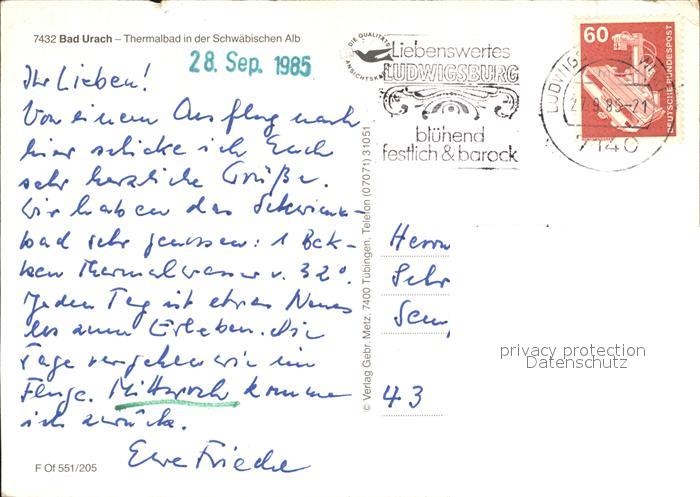 7432 Bad Urach – Thermalbad in der Schwäbischen Alb
28. Sep. 1985
DIE QUALITÄTS
ANSICHTSKA
Liebenswertes
LUDWIGSBURG
blühend
festlich & barock
LUDWIGS
27.9.85-21
7140
60
DEUTSCHE BUNDESPOST
Ihr Lieben!
Von einem Ausflug nach
hier schicke ich Euch
sehr herzliche Grüße.
Wir haben das Schwimm-
bad sehr genossen: 1 Bek-
ken Thermalwasser v. 32°.
Jeden Tag ist etwas Neues
los zum Erleben. Die
Tage vergehen wie im
Fluge. Mittwoch komme
ich zurück.
Eure Friede
Herrn
43
© Verlag Gebr. Metz, 7400 Tübingen, Telefon (07071) 31051
privacy protection
Datenschutz
F Of 551/205